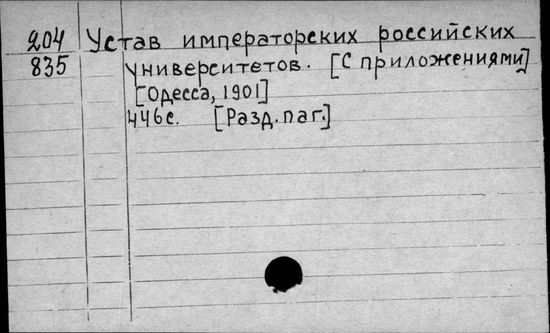 204 Устав императорских российских
835 университетов. [С приложениями]
[Одесса, 1901]
446с. [Разд.паг.]